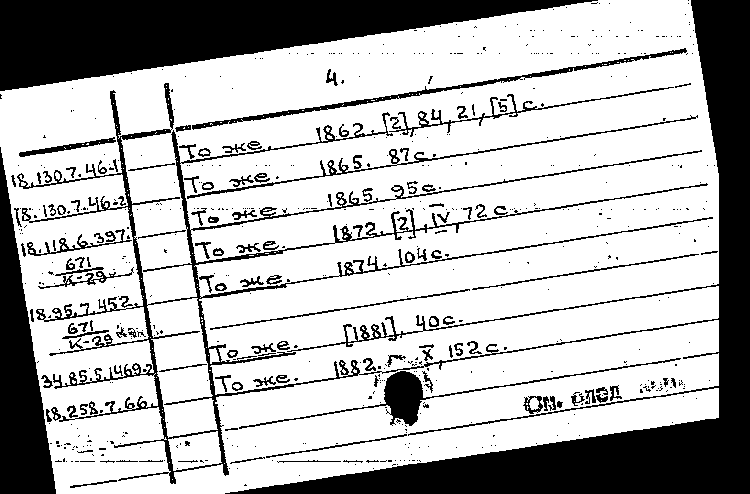 4.
18.130.7.46-1 То же. 1862. [2], 84, 21, [5] с.
18.130.7.46-2 То же. 1865. 87 с.
18.118.6.397. То же. 1865. 95 с.
671
К-29
То же. 1872. [2], IV, 72 с.
18.95.7.452. То же. 1874. 104 с.
671
К-29
34.85.5.1469-2 То же. [1881]. 40 с.
18.258.7.66. То же. 1882. X, 152 с.
См. след